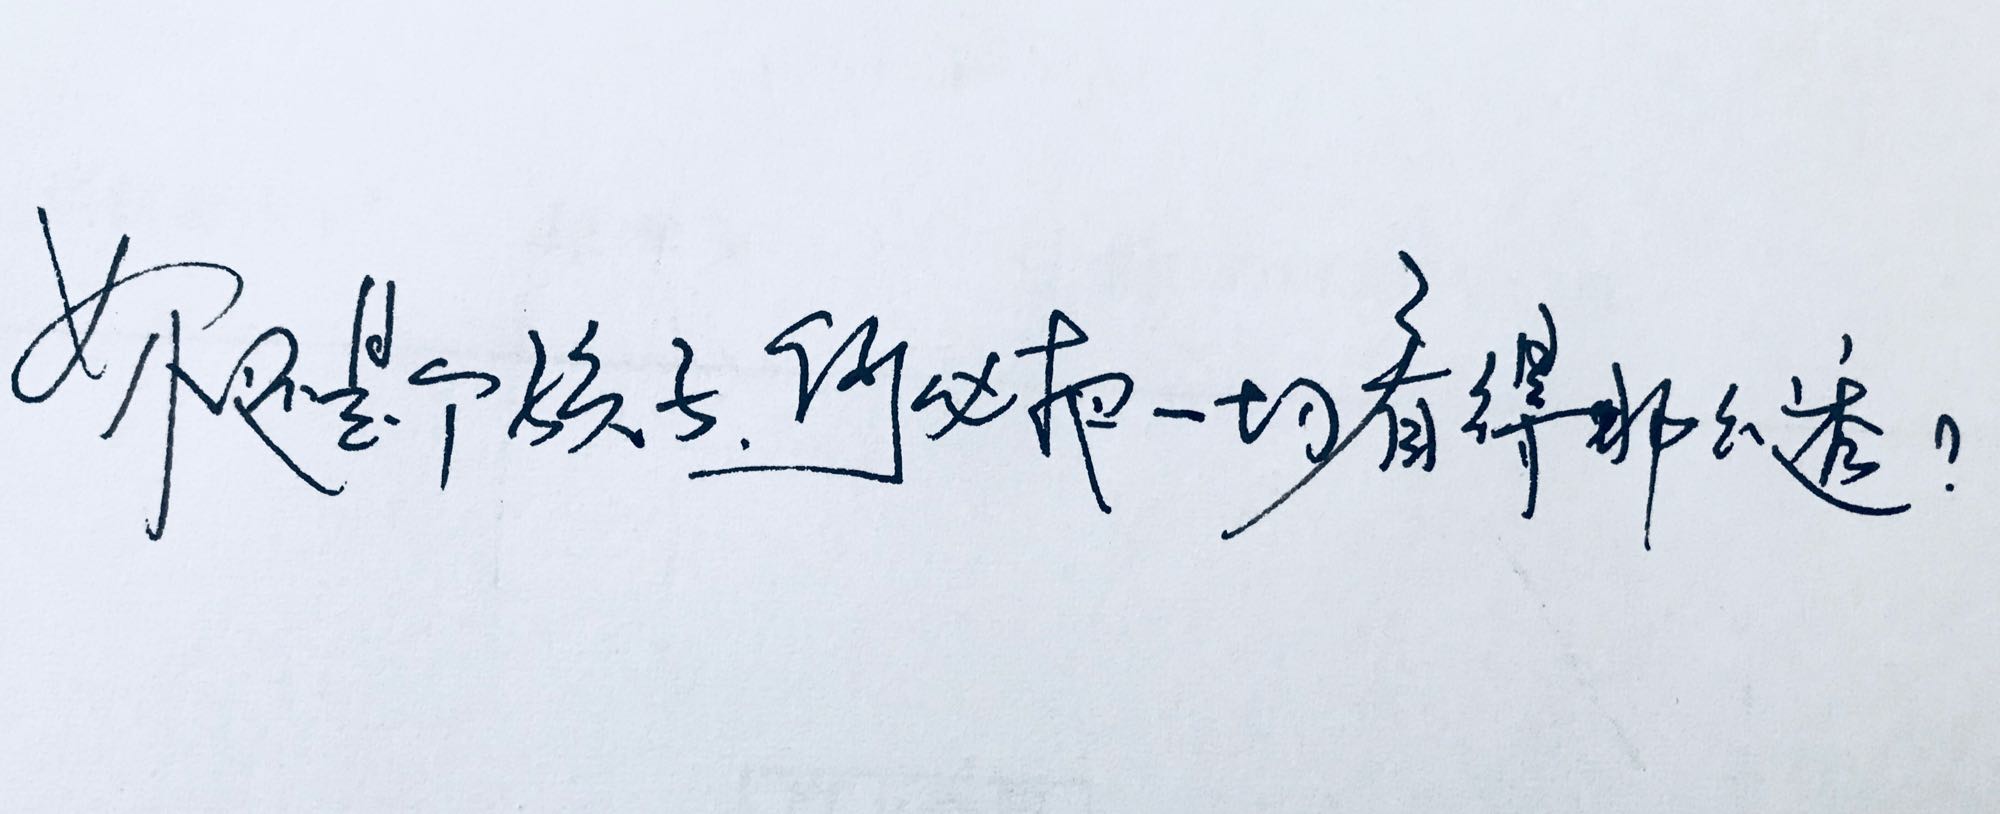 你还是个孩子.何必把一切看得那么透?